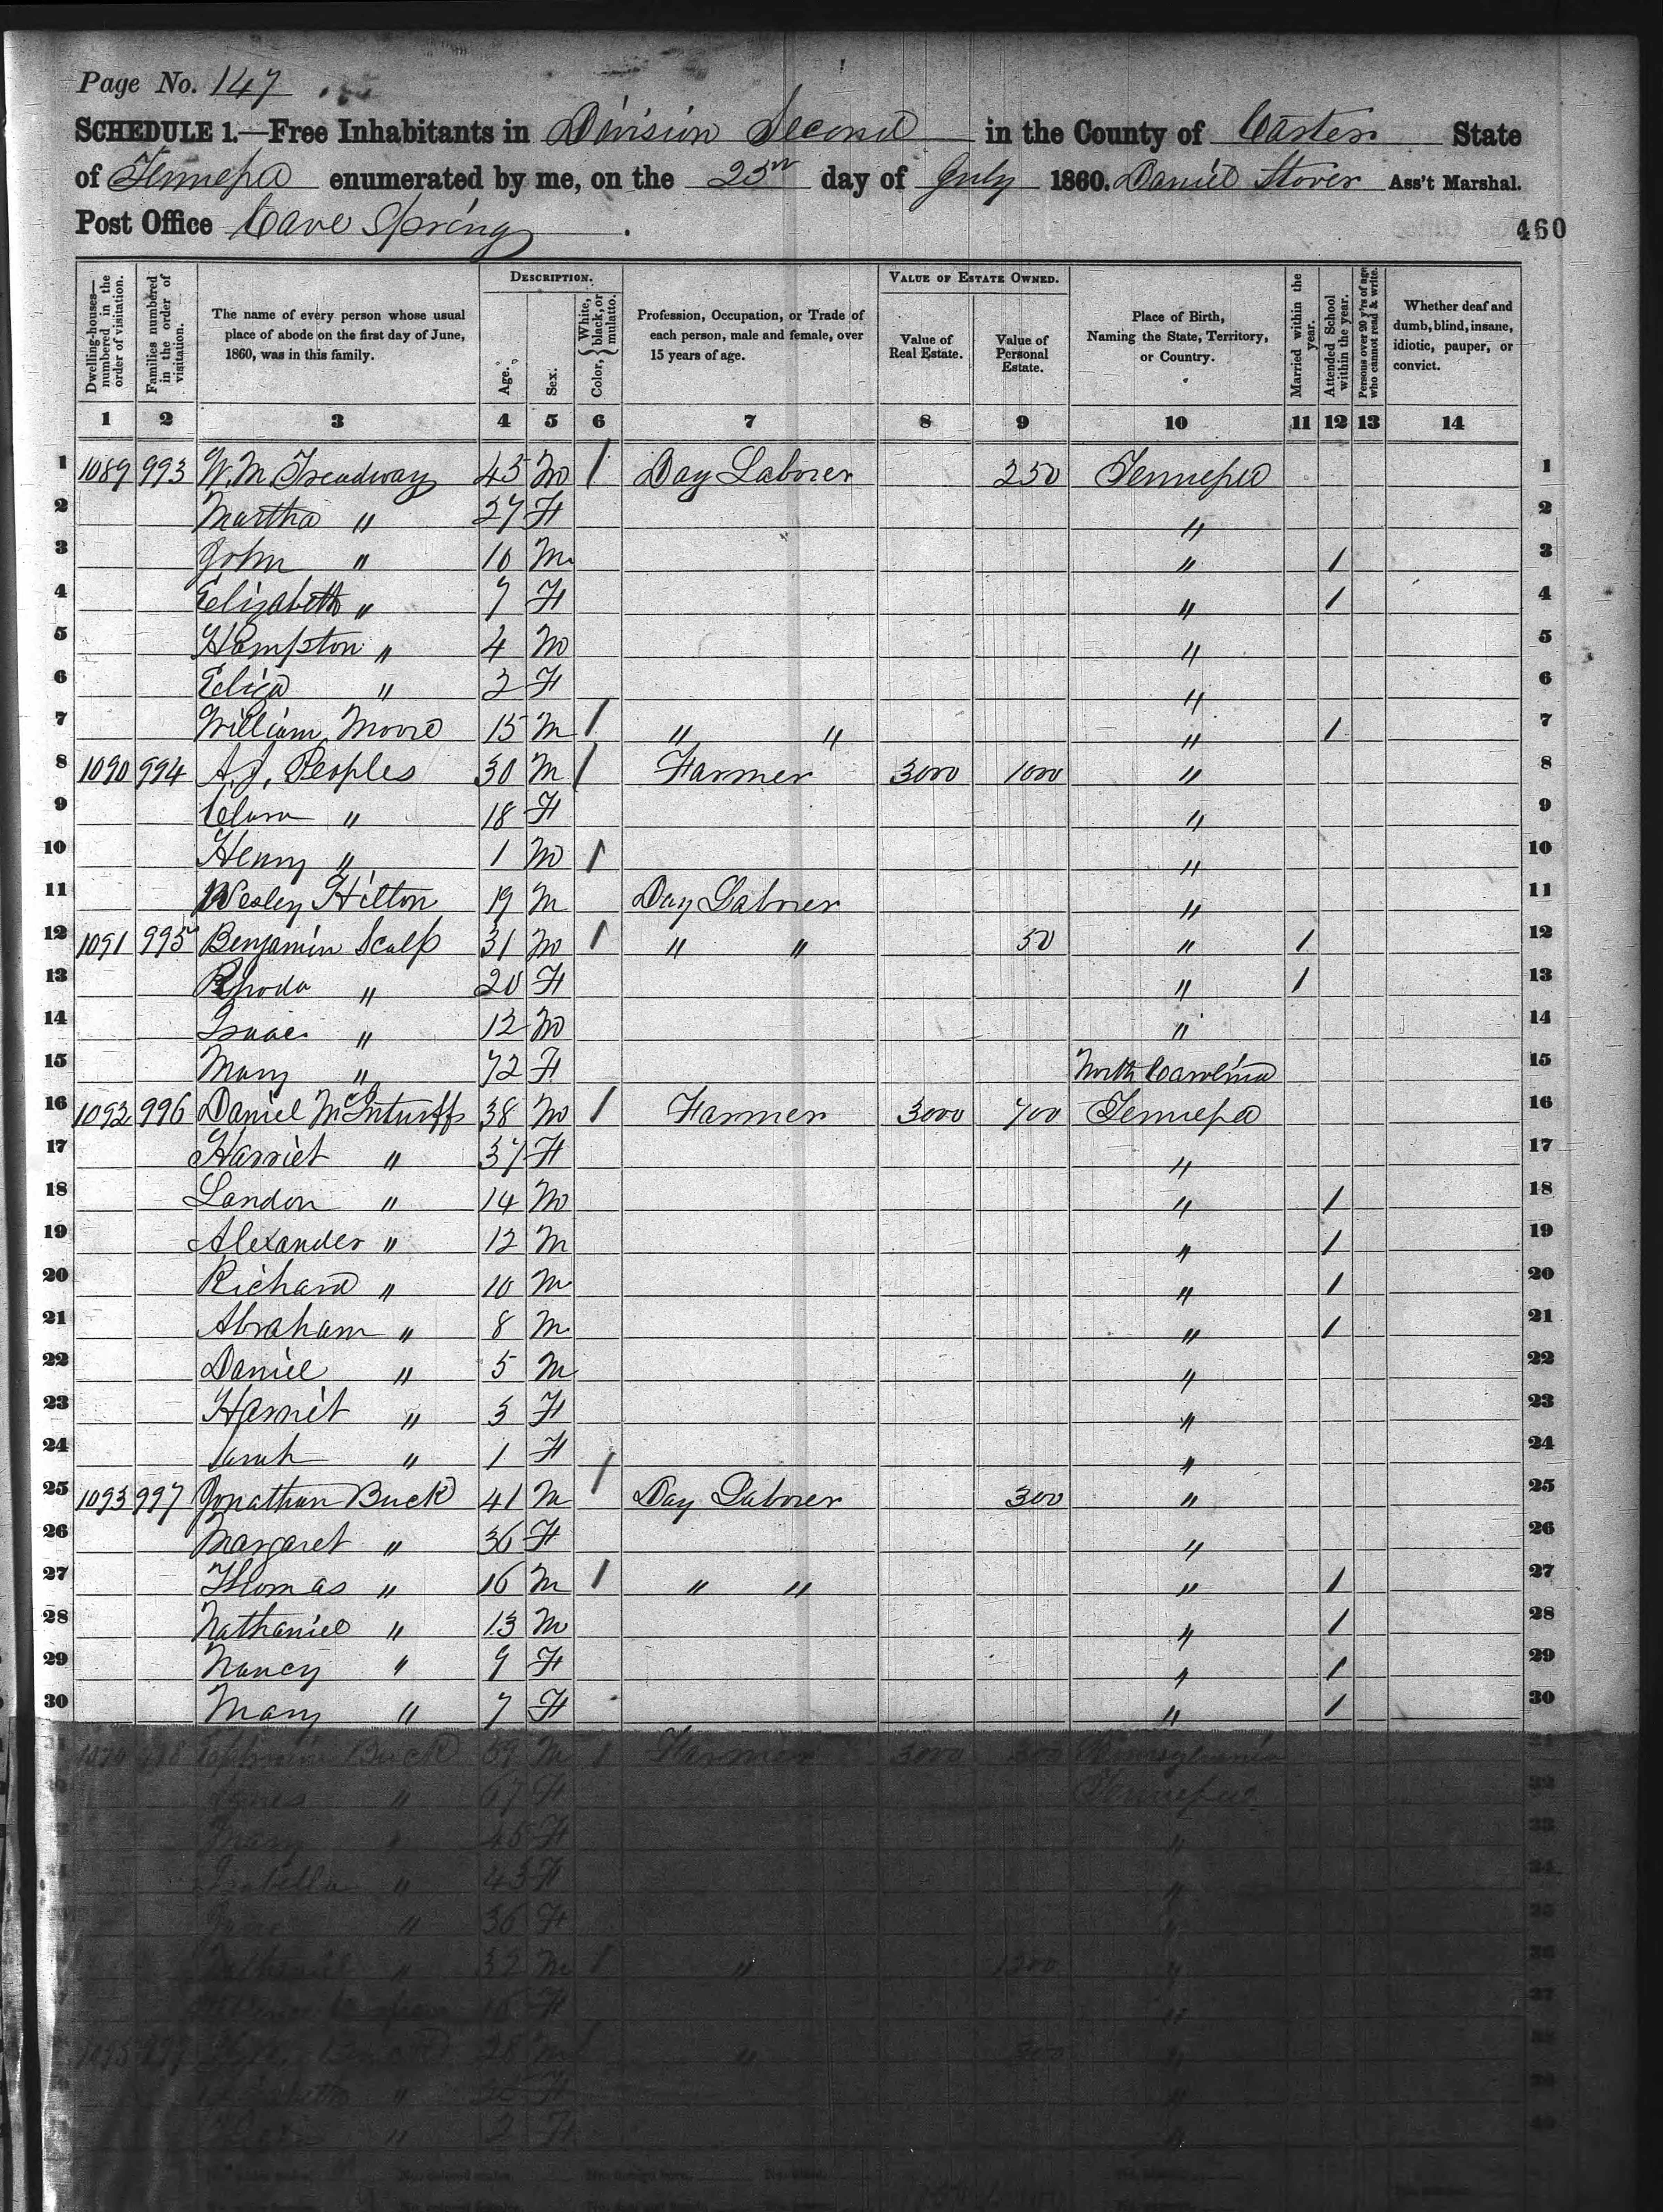 Page No. 147
SCHEDULE 1.—Free Inhabitants in Division Second in the County of Carter State
of Tennessee enumerated by me, on the 25th day of July 1860. Daniel Stover Ass't Marshal.
Post Office Cave Spring .
460
Dwelling-houses—numbered in the order of visitation.
Families numbered in the order of visitation.
The name of every person whose usual place of abode on the first day of June, 1860, was in this family.
DESCRIPTION.
Age.
Sex.
Color, White, black, or mulatto.
Profession, Occupation, or Trade of each person, male and female, over 15 years of age.
VALUE OF ESTATE OWNED.
Value of Real Estate.
Value of Personal Estate.
Place of Birth, Naming the State, Territory, or Country.
Married within the year.
Attended School within the year.
Persons over 20 y'rs of age who cannot read & write.
Whether deaf and dumb, blind, insane, idiotic, pauper, or convict.
1 2 3 4 5 6 7 8 9 10 11 12 13 14
1 1089 993 W. M Treadway 45 M / Day Laborer 250 Tennessee 1
2 Martha " 27 F " 2
3 John " 10 M " / 3
4 Elizabeth " 7 F " / 4
5 Hampton " 4 M " 5
6 " 2 F " 6
7 William Moore 15 M / " " " / 7
8 1090 994 A. J. Peoples 30 M / Farmer 3000 1000 " 8
9 Clara " 18 F " 9
10 Henry " 1 M / " 10
11 Wesley Hilton 19 M Day Laborer " 11
12 1091 995 Benjamin Scalf 31 M / " " 50 " / 12
13 Rhoda " 20 F " / 13
14 Isaac " 12 M " 14
15 Mary " 72 F North Carolina 15
16 1092 996 Daniel McInturff 38 M / Farmer 3000 700 Tennessee 16
17 Harriet " 37 F " 17
18 Landon " 14 M " / 18
19 Alexander " 12 M " / 19
20 Richard " 10 M " / 20
21 Abraham " 8 M " / 21
22 Daniel " 5 M " 22
23 Harriet " 3 F " 23
24 Sarah " 1 F " 24
25 1093 997 Jonathan Buck 41 M / Day Laborer 300 " 25
26 Margaret " 36 F " 26
27 Thomas " 16 M / " " " / 27
28 Nathaniel " 13 M " / 28
29 Nancy " 9 F " / 29
30 Mary " 7 F " / 30
Buck M / Farmer 3000 300 Pennsylvania
" 67 F Tennessee 32
Mary " 45 F " 33
Isabella " 43 F " 34
" 36 F " 35
Nathaniel " 32 M / " 1200 " 36
F " 37
28 M / " 300 "
" F "
" 2 F " 40